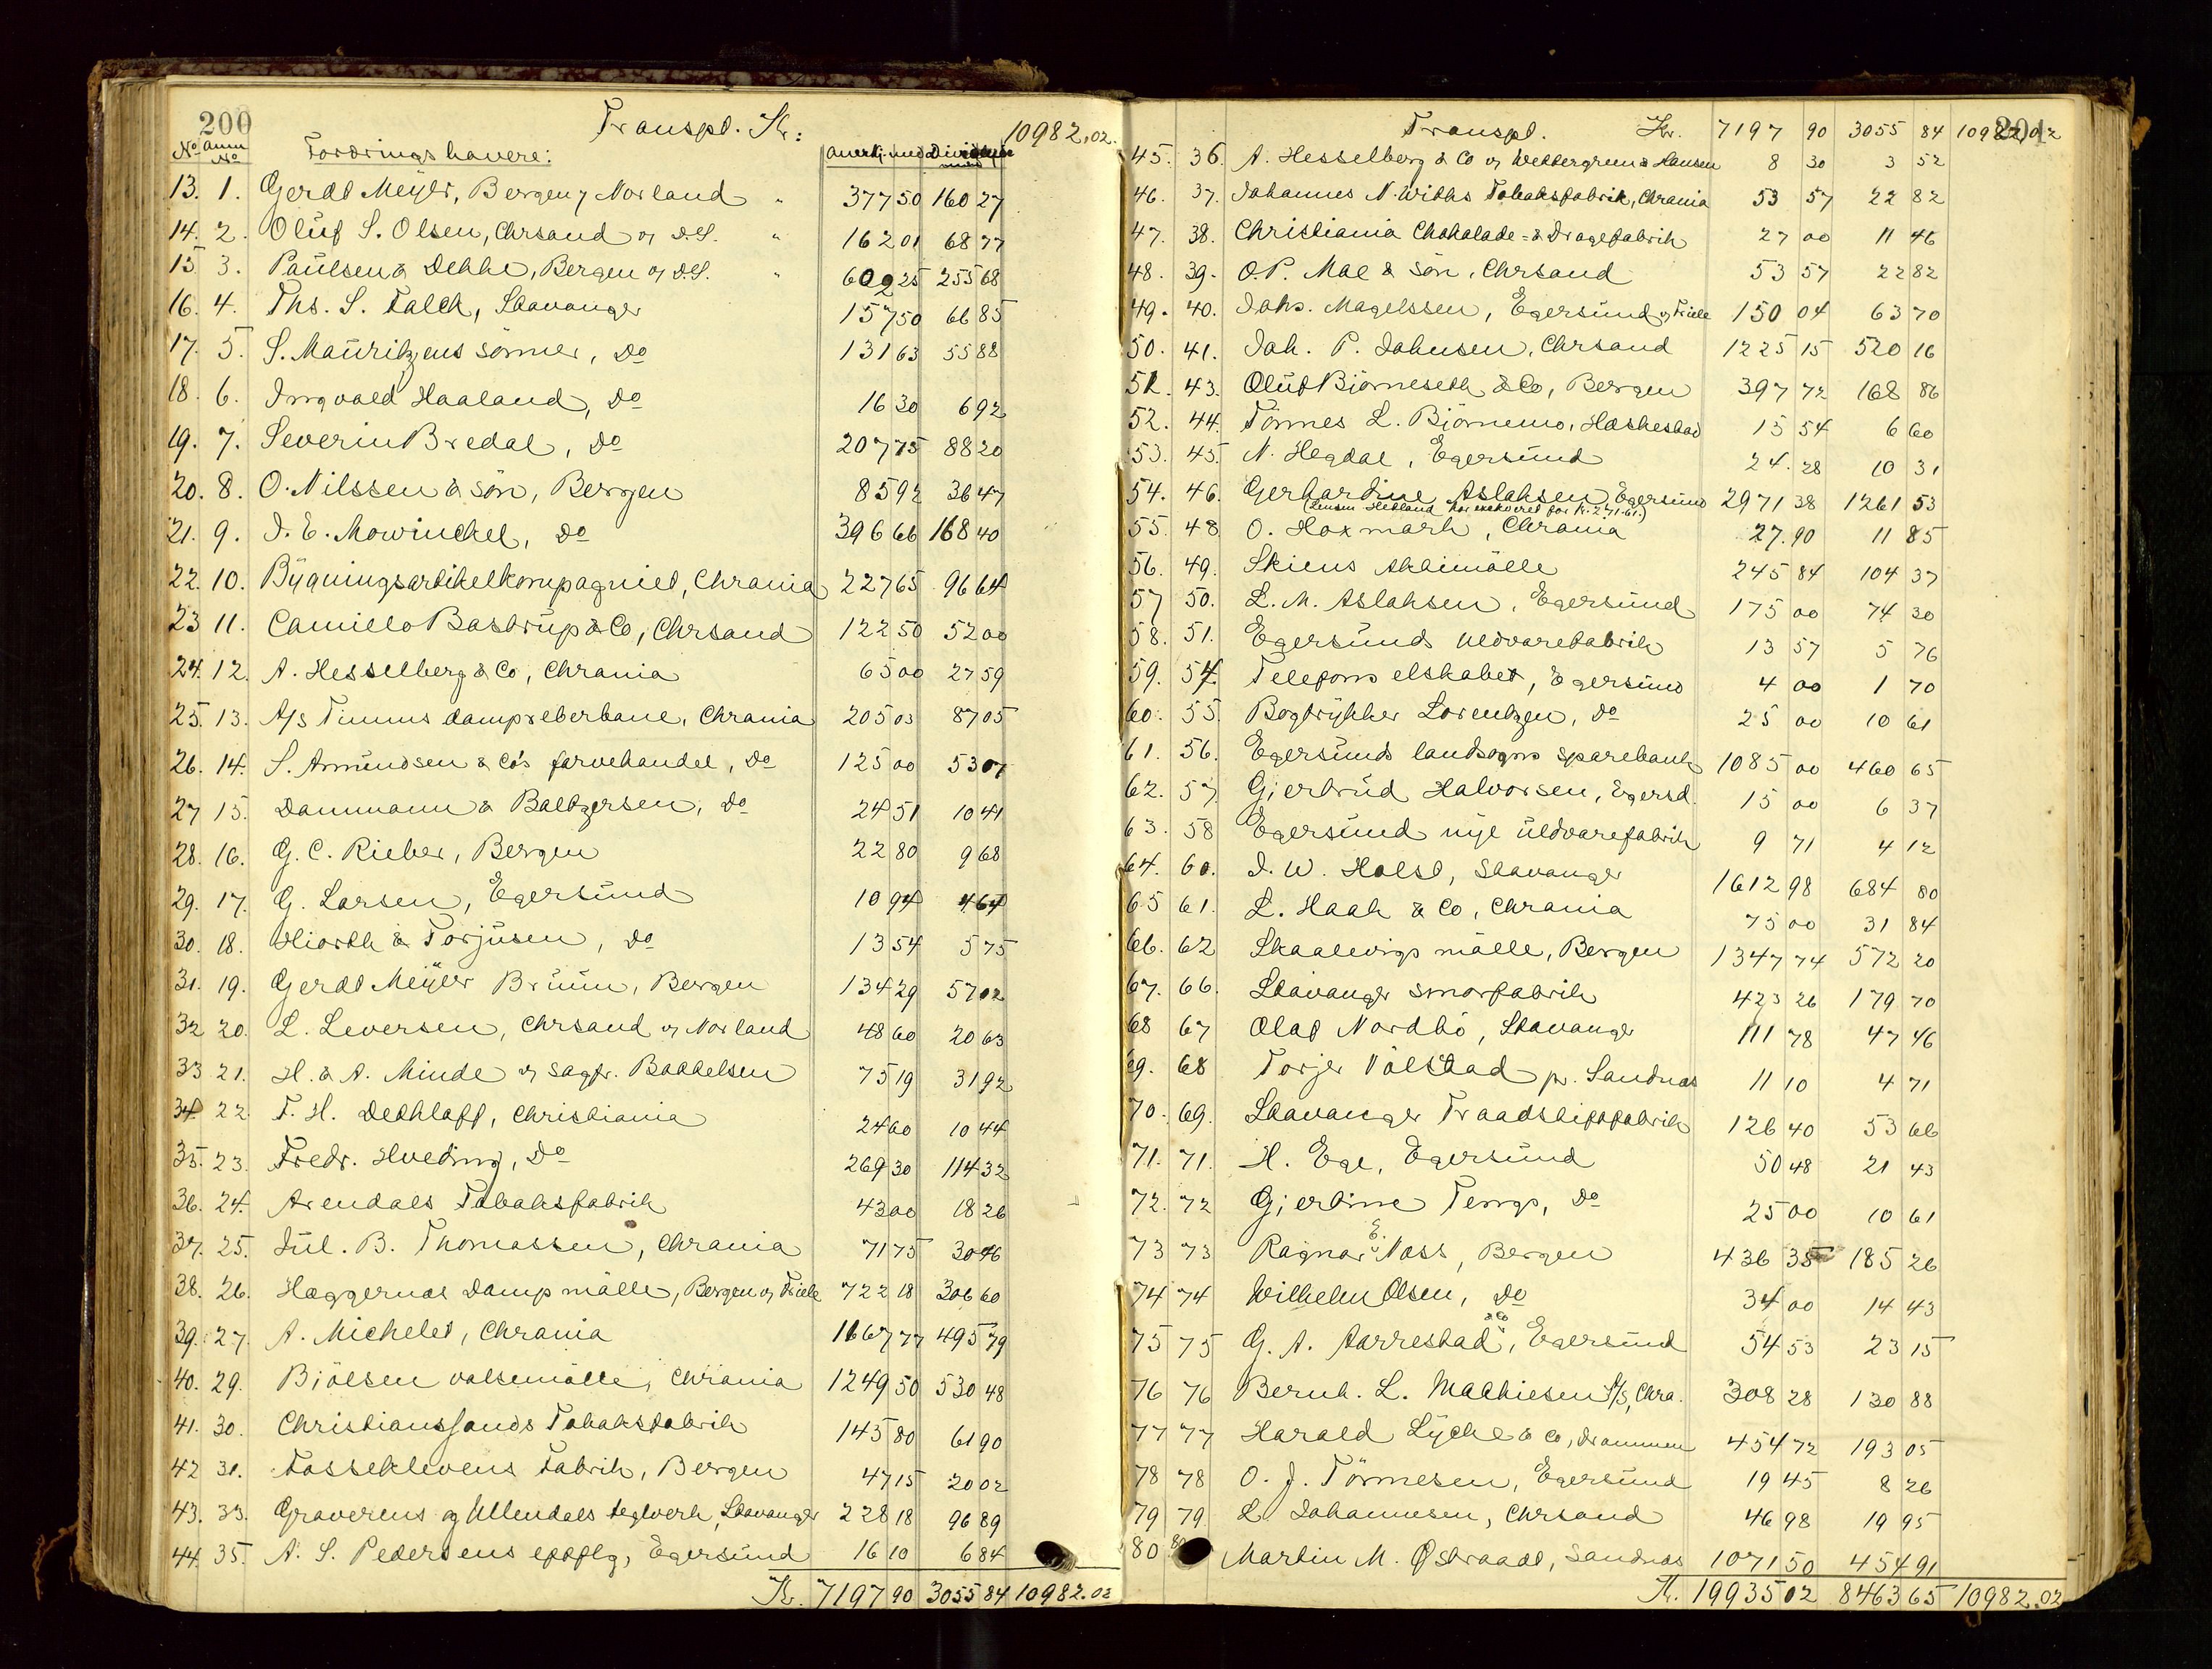 200
Transpt. Kr: 10982,02.
No Anm No Fordringshavere: Anerkj. med Dividende med
13. 1. Gerdt Meyer, Bergen, Norland " 377 50 160 27
14. 2. Oluf S. Olsen, Chrsand og D.S. " 162 01 68 77
15. 3. Paulsen & Dekke, Bergen og D.S. " 602 25 255 68
16. 4. Ths. S. Falck, Stavanger 157 50 66 85
17. 5. S. Mauritzens sönner, Do 131 63 55 88
18. 6. Ingvald Haaland, Do 16 30 6 92
19. 7. Severin Bredal, Do 207 75 88 20
20. 8. O. Nilssen & sön, Bergen 85 92 36 47
21. 9. J. E. Mowinckel, Do 396 66 168 40
22. 10. Bygningsartikelkompagniet, Chrania 227 65 96 64
23 11. Camillo Bastrup & Co, Chrsand 122 50 52 00
24. 12. A. Hesselberg & Co, Chrania 65 00 27 59
25. 13. A/s Timms dampreberbane, Chrania 205 03 87 05
26. 14. S. Amundsen & Co's farvehandel, Do 125 00 53 07
27 15. Dammann & Baltzersen, Do 24 51 10 41
28. 16. G. C. Rieber, Bergen 22 80 9 68
29. 17. G. Larsen, Egersund 10 94 4 64
30. 18. Hiorth & Torjusen, Do 13 54 5 75
31. 19. Gerdt Meyer Bruun, Bergen 134 29 57 02
32 20. L. Leversen, Chrsand og Norland 48 60 20 63
33 21. H. & A. Minde og sagfr. Baadelsen 75 19 31 92
34 22. F. H. Dethloff, Christiania 24 60 10 44
35. 23. Fredr. Hveding, Do 269 30 114 32
36. 24. Arendals Tobaksfabrik 43 00 18 26
37. 25. Jul. B. Thomassen, Chrania 71 75 30 46
38. 26. Hæggernæs Dampmölle, Bergen og Friele 722 18 306 60
39. 27. A. Michelet, Chrania 1167 77 495 79
40. 29. Bjölsen valsemölle, Chrania 1249 50 530 48
41. 30. Christianssands Tobaksfabrik 145 80 61 90
42 31. Fosseklevens Fabrik, Bergen 47 15 20 02
43. 33. Graverens og Ullendals teglverk, Stavanger 228 18 96 89
44. 35. A. S. Pedersens eftflg, Egersund 16 10 6 84
Kr. 7197 90 3055 84 10982.02
201
Transpt. Kr. 7197 90 3055 84 10982,02
45. 36. A. Hesselberg & Co og Wettergreen & Hansen 8 30 3 52
46. 37. Johannes N. Withs Tobaksfabrik, Chrania 53 57 22 82
47. 38. Christiania Chokolade- & Dragefabrik 27 00 11 46
48. 39. O.P. Moe & Sön, Chrsand 53 57 22 82
49. 40. Johs. Magelssen, Egersund og Friele 150 04 63 70
50. 41. Joh. P. Johnsen, Chrsand 1225 15 520 16
51. 43. Oluf Björneseth & Co, Bergen 397 72 168 86
52. 44. Tönnes L. Björnemo, Hæskestad 15 54 6 60
53. 45. N. Hegdal, Egersund 24. 28 10 31
54. 46. Gerhardine Aslaksen, Egersund 2971 38 1261 53
(Jensen Hetland har exekveret for kr. 271.61.)
55. 48 O. Hoxmark, Chrania 27. 90 11 85
56. 49. Skiens Aktiemölle 245 84 104 37
57 50. L. M. Aslaksen, Egersund 175 00 74 30
58. 51. Egersunds Uldvarefabrik 13 57 5 76
59. 54. Telefonselskabet, Egersund 4 00 1 70
60. 55. Bogtrykker Lorentzen, Do 25 00 10 61
61. 56. Egersunds landsogns sparebank 1085 00 460 65
62. 57. Gjertrud Halvorsen, Egersd. 15 00 6 37
63. 58 Egersund nye uldvarefabrik 9 71 4 12
64. 60. J. W. Holst, Stavanger 1612 98 684 80
65 61. L. Haak & Co, Chrania 75 00 31 84
66. 62 Skaalevigs mölle, Bergen 1347 74 572 20
67. 66. Stavanger smörfabrik 423 26 179 70
68 67 Olaf Nordbö, Stavanger 111 78 47 46
69. 68 Torjer Völstad pr. Sandnæs 11 10 4 71
70. 69. Stavanger Traadstiftfabrik 126 40 53 66
71. 71. H. Ege, Egersund 50 48 21 43
72. 72 Gjertine Tengs, Do 25 00 10 61
73 73 Ragnar E. Næss, Bergen 436 35 185 26
74 74 Wilhelm Olsen, Do 34 00 14 43
75 75 G. A. Aarrestad & Co, Egersund 54 53 23 15
76 76 Bernh. L. Mathiesen A/S, Chra. 308 28 130 88
77 77 Harald Lyche & Co, Drammen 454 72 193 05
78 78 O. J. Tönnesen, Egersund 19 45 8 26
79 79 L Johannesen, Chrsand 46 98 19 95
80 80 Martin M. Østraadt, Sandnæs 1071 50 454 91
Kr. 19935 02 8463 65 10982.02